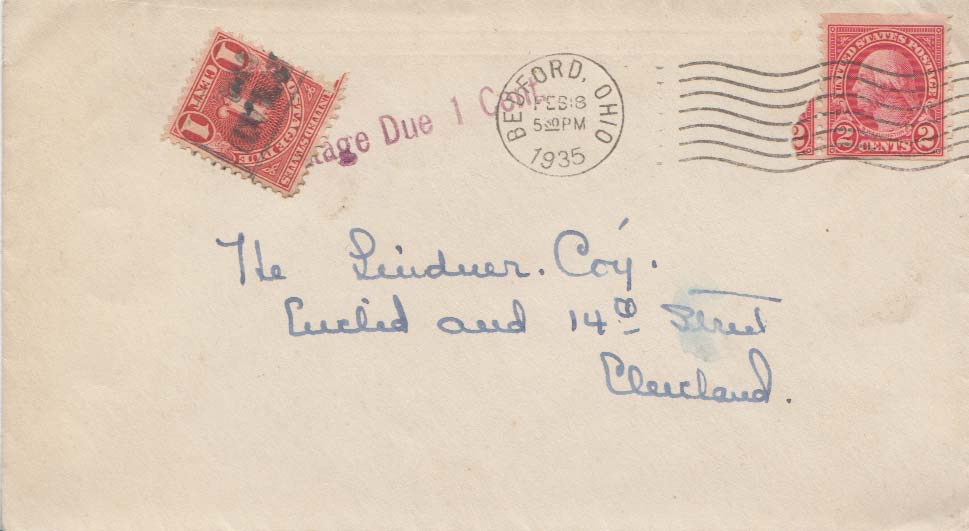 1
CENT
1
POSTAGE DUE
UNITED STATES
tage Due 1 Cent
BEDFORD, OHIO
FEB 18
5 30 PM
1935
UNITED STATES POSTAGE
2 CENTS 2
2
The Lindner Coy.
Euclid and 14th Street
Cleveland.